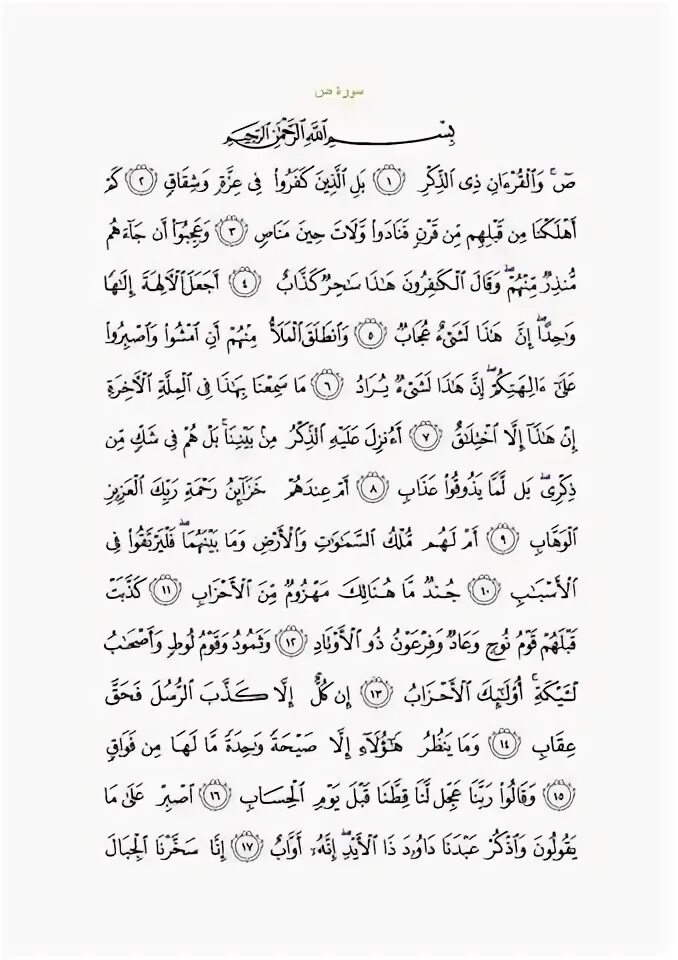 سورة ص
بِسْمِ اللَّهِ الرَّحْمَٰنِ الرَّحِيمِ
صٓ ۚ وَالْقُرْءَانِ ذِى الذِّكْرِ ١ بَلِ الَّذِينَ كَفَرُوا۟ فِى عِزَّةٍ وَشِقَاقٍ ٢ كَمْ
أَهْلَكْنَا مِن قَبْلِهِم مِّن قَرْنٍ فَنَادَوا۟ وَّلَاتَ حِينَ مَنَاصٍ ٣ وَعَجِبُوٓا۟ أَن جَآءَهُم
مُّنذِرٌ مِّنْهُمْ ۖ وَقَالَ الْكَٰفِرُونَ هَٰذَا سَٰحِرٌ كَذَّابٌ ٤ أَجَعَلَ الْـَٔالِهَةَ إِلَٰهًا
وَٰحِدًا ۖ إِنَّ هَٰذَا لَشَىْءٌ عُجَابٌ ٥ وَانطَلَقَ الْمَلَأُ مِنْهُمْ أَنِ امْشُوا۟ وَاصْبِرُوا۟
عَلَىٰٓ ءَالِهَتِكُمْ ۖ إِنَّ هَٰذَا لَشَىْءٌ يُرَادُ ٦ مَا سَمِعْنَا بِهَٰذَا فِى الْمِلَّةِ الْـَٔاخِرَةِ
إِنْ هَٰذَآ إِلَّا اخْتِلَٰقٌ ٧ أَءُنزِلَ عَلَيْهِ الذِّكْرُ مِنۢ بَيْنِنَا ۚ بَلْ هُمْ فِى شَكٍّ مِّن
ذِكْرِى ۖ بَل لَّمَّا يَذُوقُوا۟ عَذَابِ ٨ أَمْ عِندَهُمْ خَزَآئِنُ رَحْمَةِ رَبِّكَ الْعَزِيزِ
الْوَهَّابِ ٩ أَمْ لَهُم مُّلْكُ السَّمَٰوَٰتِ وَالْأَرْضِ وَمَا بَيْنَهُمَا ۖ فَلْيَرْتَقُوا۟ فِى
الْأَسْبَٰبِ ١٠ جُندٌ مَّا هُنَالِكَ مَهْزُومٌ مِّنَ الْأَحْزَابِ ١١ كَذَّبَتْ
قَبْلَهُمْ قَوْمُ نُوحٍ وَعَادٌ وَفِرْعَوْنُ ذُو الْأَوْتَادِ ١٢ وَثَمُودُ وَقَوْمُ لُوطٍ وَأَصْحَٰبُ
لْـَٔيْكَةِ ۚ أُو۟لَٰٓئِكَ الْأَحْزَابُ ١٣ إِن كُلٌّ إِلَّا كَذَّبَ الرُّسُلَ فَحَقَّ
عِقَابِ ١٤ وَمَا يَنظُرُ هَٰٓؤُلَآءِ إِلَّا صَيْحَةً وَٰحِدَةً مَّا لَهَا مِن فَوَاقٍ
١٥ وَقَالُوا۟ رَبَّنَا عَجِّل لَّنَا قِطَّنَا قَبْلَ يَوْمِ الْحِسَابِ ١٦ اصْبِرْ عَلَىٰ مَا
يَقُولُونَ وَاذْكُرْ عَبْدَنَا دَاوُۥدَ ذَا الْأَيْدِ ۖ إِنَّهُۥٓ أَوَّابٌ ١٧ إِنَّا سَخَّرْنَا الْجِبَالَ